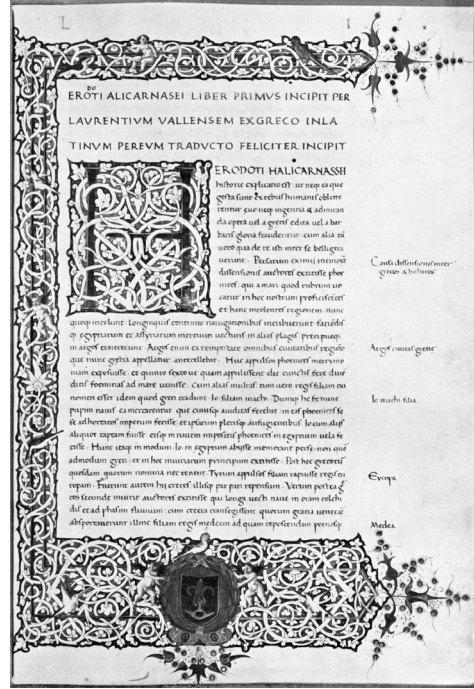 ERODOTI ALICARNASEI LIBER PRIMUS INCIPIT PER
LAURENTIUM VALLENSEM EXGRECO INLA
TINUM PEREUM TRADUCTO FELICITER INCIPIT
HERODOTI HALICARNASSEI
historie explicatio est ut neq ea que
gesta sunt
rentur que neq ingentia & admiran
da opera uel a grecis edita uel a bar
baris gloria fraudentur cum alia tū
uero qua de re isti inter se belligera
uerunt. Persarum eximii memorāt
dissensionis auctores extitisse phoe
nices. qui a mari quod rubrum uo
catur in hoc nostrum proficiscētes
et hanc incolentes regionem. nunc
quoq incolunt. longinquis continuo nauigationibus incubuerunt. faciēdis
q egyptiarum et assyriarum mercium uecturis in alias plagas
in argos traiecerunt. Argos enim ea tempestate omnibus ciuitatibus regionis
que nunc grecia appellatur antecellebat. Huc appulsos phoenices
nam exposuisse. et quinto sexto ue quam appulissent die cunctis fere diue
ditis foeminas ad mare uenisse. Cum alias multas tum uero regis filiam cui
nomen esset idem quod greci tradunt. Io filiam inachi. Dumq he fœmine
puppim nauis
se adhortatos impetum fecisse. et
aliquot captam fuisse. eisq in nauem impositis phoenices in egyptum uela fe
cisse. Hunc itaq in modum. Io in egyptum abiisse memorant perse. non quē
admodum greci. et in hoc iniuriarum principium extitisse. Post hec grecorū
quosdam quorum nomina nec tenent. Tyrum appulsos filiam rapuisse regis eu
ropam. Fuerunt autem hii cretes illisq par pari repensum. Verum postea g
cos secunde iniurie auctores extitisse qui longa uecti naue in oram colchi
dis et ad phasim fluuium: cum cetera transegissent quorum gratia uenerāt
absportauerunt illinc filiam regis medeam ad quam repetendam
Causa dissensionis inter
grecos & barbaros
Argos ciuitas grecie
Io inachi filia
Europa
Medea